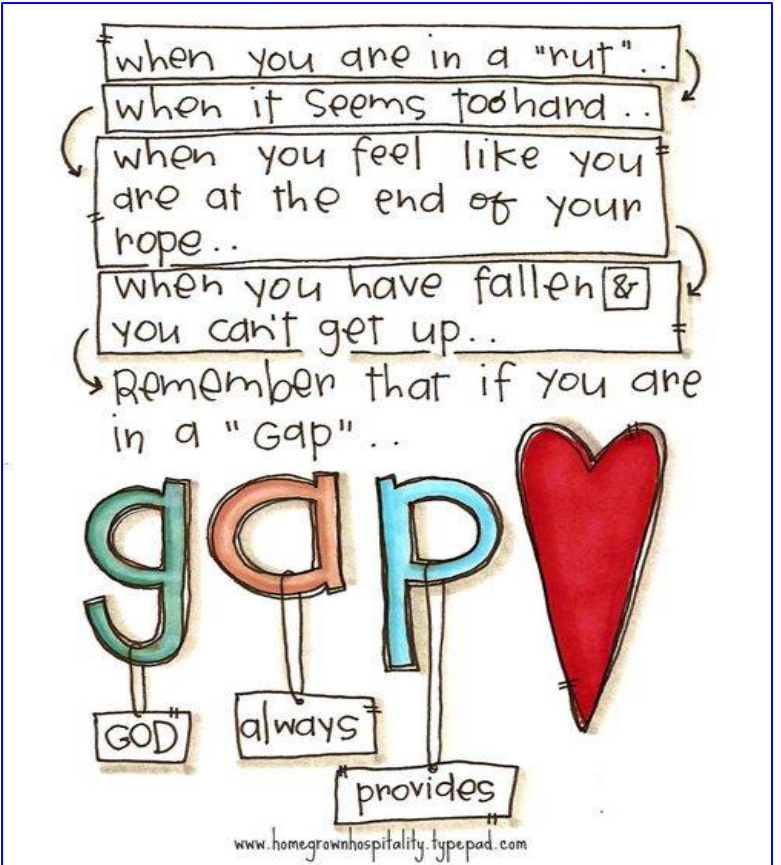 when you are in a "rut"..
when it seems too hard ..
when you feel like you
are at the end of your
rope..
when you have fallen &
you can't get up..
Remember that if you are
in a "Gap"..
gap
GOD
always
provides
www.homegrownhospitality.typepad.com